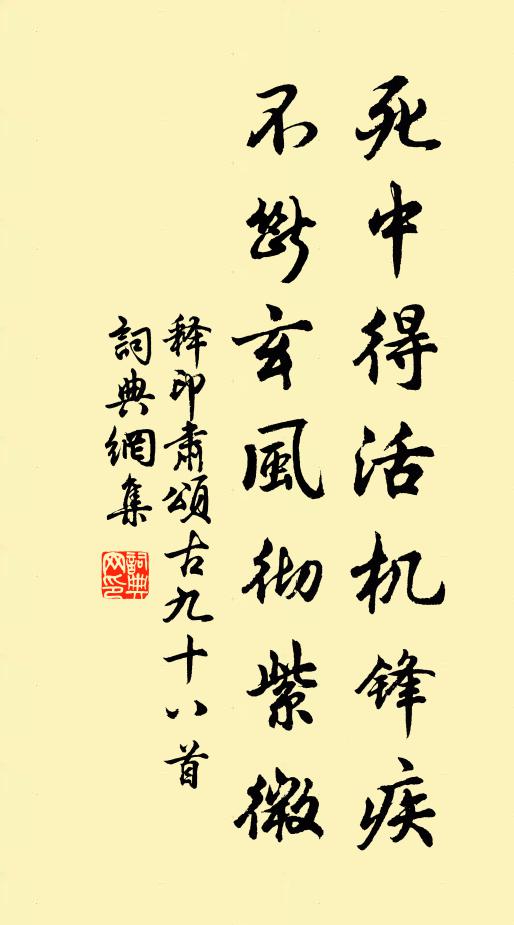 死中得活机锋疾
不断玄風彻紫微
释印肃頌古九十八首
詞典網集
詞典網印